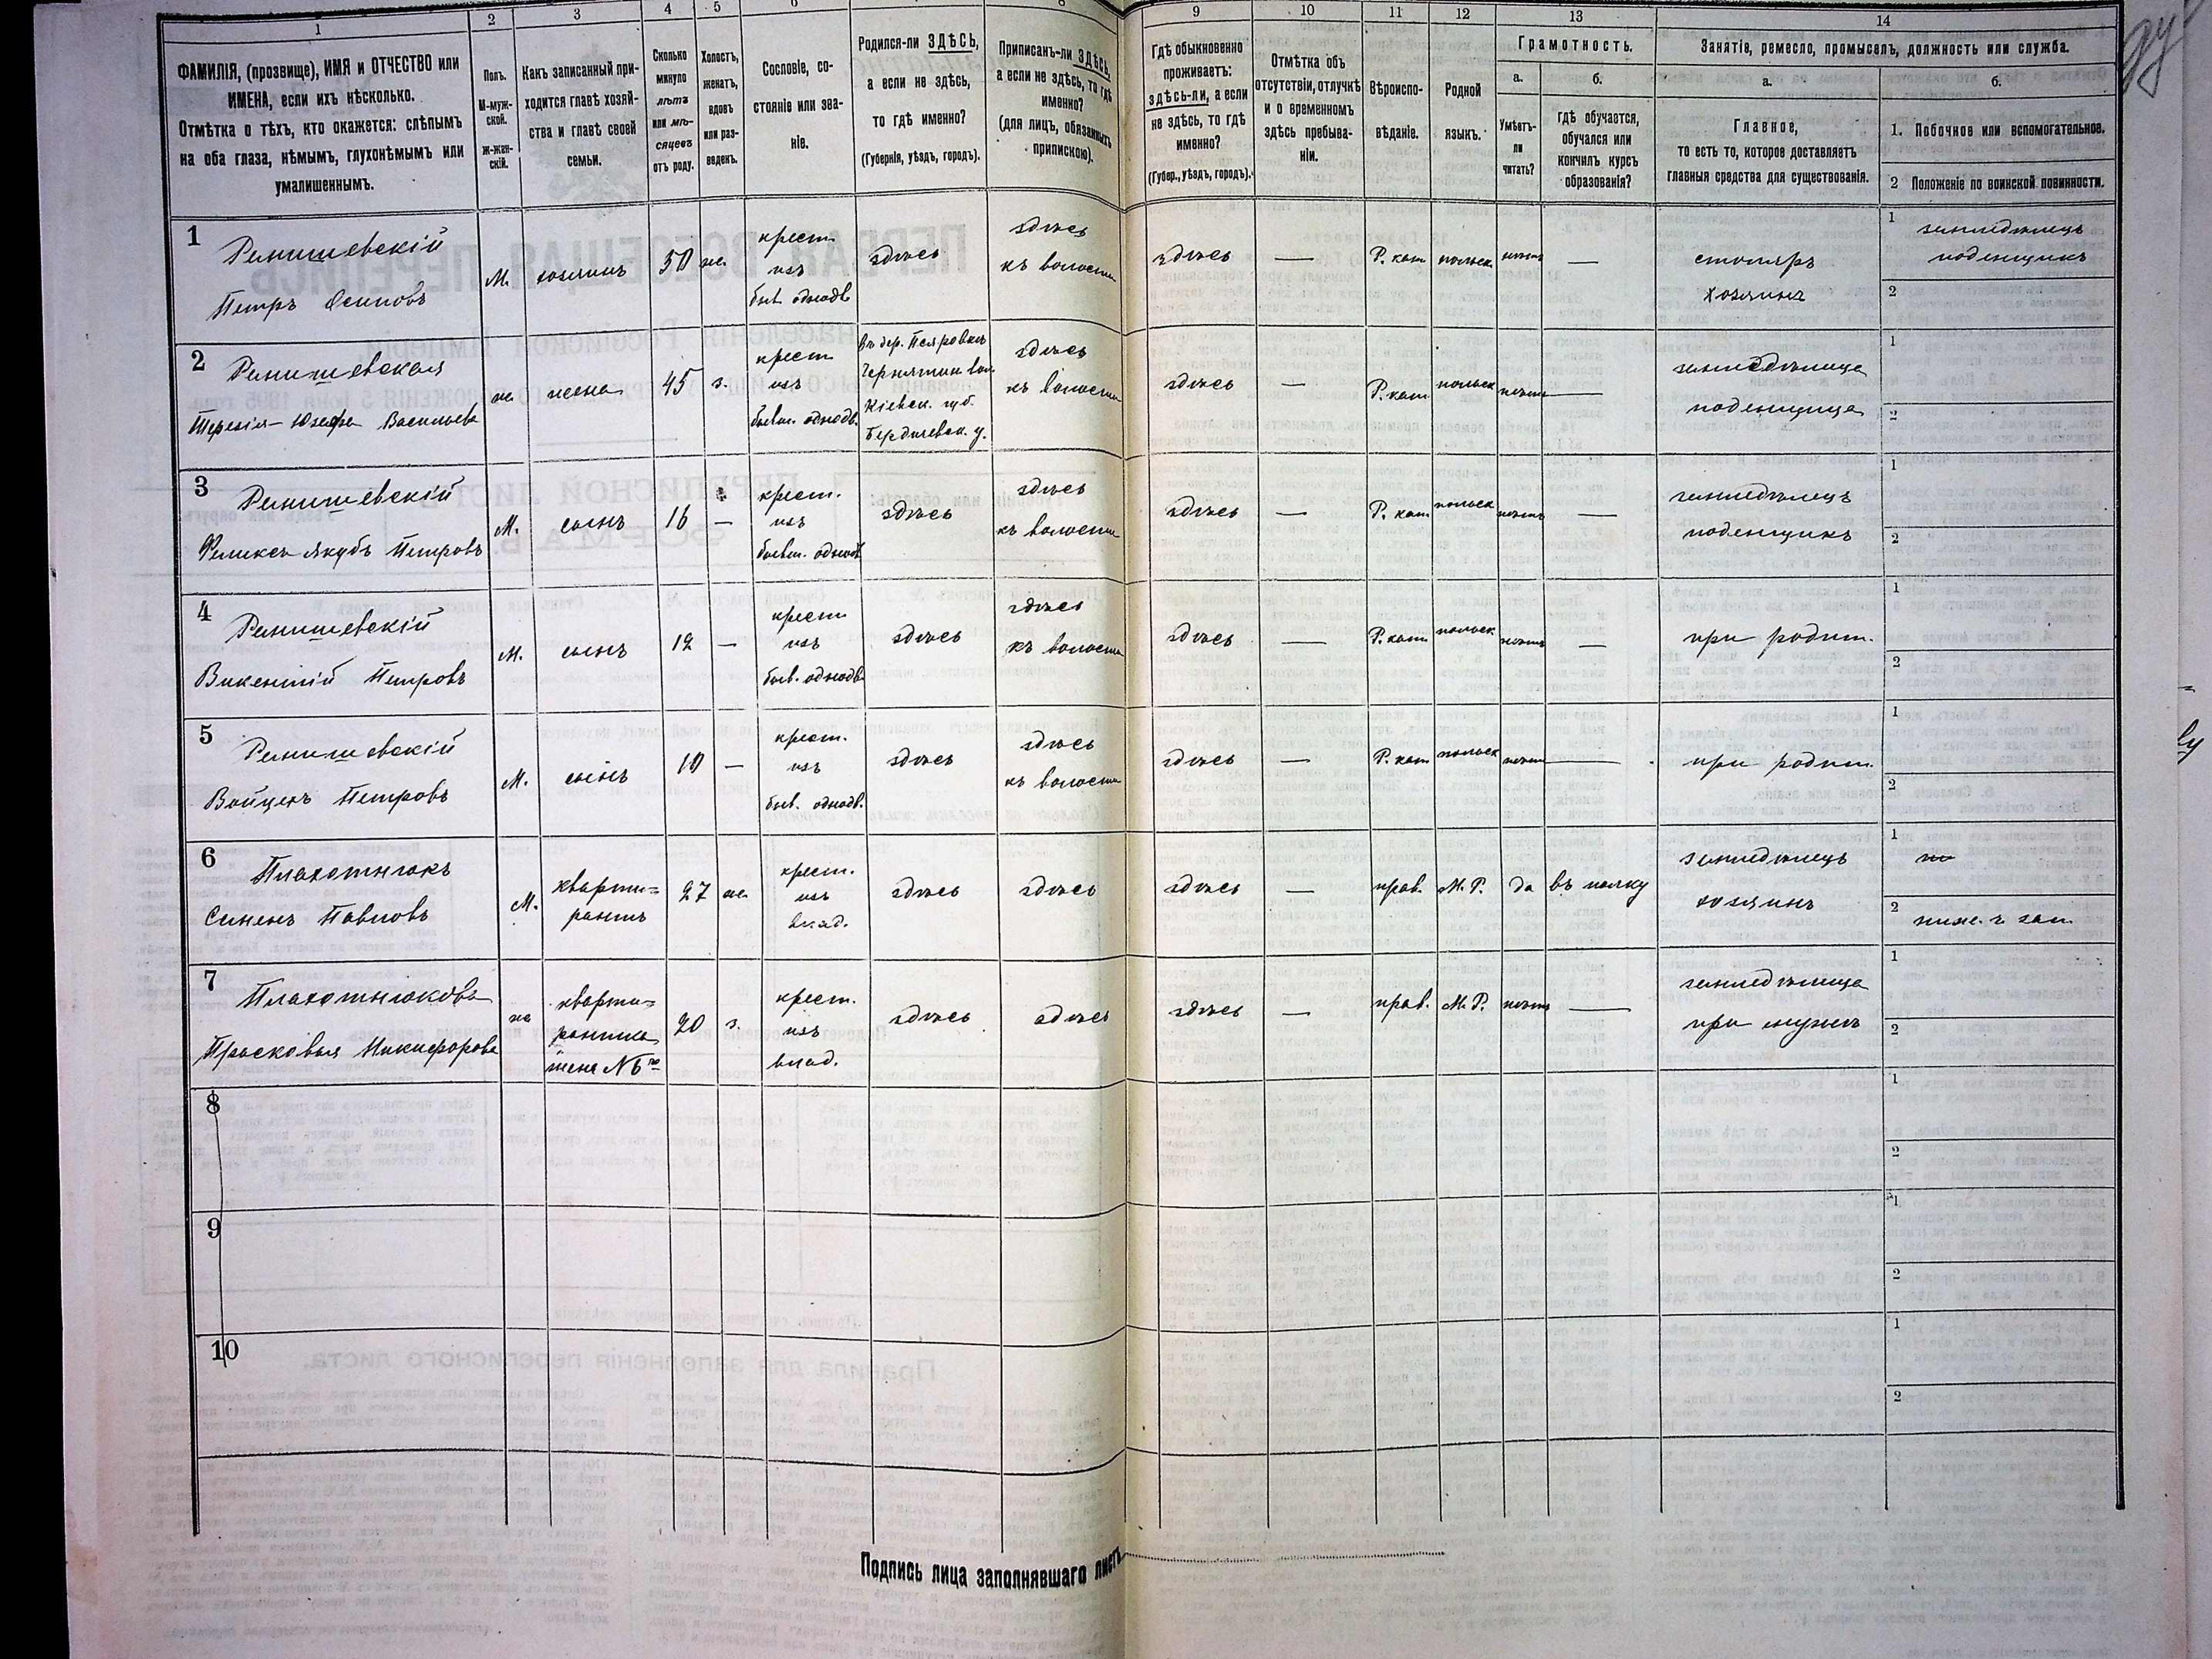 1 2 3 4 5 6 8 9 10 11 12 13 14
ФАМИЛІЯ, (прозвище), ИМЯ и ОТЧЕСТВО или
ИМЕНА, если ихъ нѣсколько.
Отмѣтка о тѣхъ, кто окажется: слѣпымъ
на оба глаза, нѣмымъ, глухонѣмымъ или
умалишеннымъ.
Полъ.
М-муж-
ской.
Ж-жен-
скій.
Какъ записанный при-
ходится главѣ хозяй-
ства и главѣ своей
семьи.
Сколько
минуло
лѣтъ
или мѣ-
сяцевъ
отъ роду.
Холостъ,
женатъ,
вдовъ
или раз-
веденъ.
Сословіе, со-
стояніе или зва-
ніе.
Родился-ли ЗДѢСЬ,
а если не здѣсь,
то гдѣ именно?
(Губернія, уѣздъ, городъ).
Приписанъ-ли ЗДѢСЬ,
а если не здѣсь, то гдѣ
именно?
(для лицъ, обязанныхъ
припискою).
Гдѣ обыкновенно
проживаетъ:
здѣсь-ли, а если
не здѣсь, то гдѣ
именно?
(Губер., уѣздъ, городъ).
Отмѣтка объ
отсутствіи, отлучкѣ
и о временномъ
здѣсь пребыва-
ніи.
Вѣроиспо-
вѣданіе.
Родной
языкъ.
Грамотность.
а.
Умѣетъ-
ли
читать?
б.
Гдѣ обучается,
обучался или
кончилъ курсъ
образованія?
Занятіе, ремесло, промыселъ, должность или служба.
а.
Главное,
то есть то, которое доставляетъ
главныя средства для существованія.
б.
1. Побочное или вспомогательное.
2 Положеніе по воинской повинности.
1
Петръ Осиповъ
М.
хозяинъ
50
ж.
крест.
изъ
быв. однодв.
здѣсь
здѣсь
къ волости
здѣсь
—
Р. кат.
польск.
нѣтъ
—
столяръ
хозяинъ
1 земледѣлецъ
поденщикъ
2
2
Терезія-Юзефа Васильева
ж.
жена
45
з.
крест.
изъ
бывш. однодв.
Кіевск. губ.
Бердичевск. у.
здѣсь
къ волости
здѣсь
—
Р. кат.
польск
нѣтъ
—
земледѣлица
поденщица
1
2
3
Феликсъ Якубъ Петровъ
М.
сынъ
16
—
крест.
изъ
бывш. однодв.
здѣсь
здѣсь
къ волости
здѣсь
—
Р. кат
польск
нѣтъ
—
земледѣлецъ
поденщикъ
1
2
4
Викентій Петровъ
М.
сынъ
12
—
крест
изъ
быв. однодв.
здѣсь
здѣсь
къ волости
здѣсь
—
Р. кат
польск.
нѣтъ
—
при родит.
1
2
5
Войцехъ Петровъ
М.
сынъ
10
—
крест.
изъ
быв. однодв.
здѣсь
здѣсь
къ волости
здѣсь
—
Р. кат
польск
нѣтъ
—
при родит.
1
2
6
Плахотнюкъ
Семенъ Павловъ
М.
кварти=
рантъ
27
ж.
крест.
изъ
влад.
здѣсь
здѣсь
здѣсь
—
прав.
М. Р.
да
въ полку
земледѣлецъ
хозяинъ
1
2
7
Плахотнюкова
Прасковья Никифорова
ж
кварти=
рантка
жена №6го
20
з.
крест.
изъ
влад.
здѣсь
здѣсь
здѣсь
—
прав.
М. Р.
нѣтъ
—
земледѣлица
при мужѣ
1
2
8
1
2
9
1
2
10
1
2
Подпись лица заполнявшаго листъ